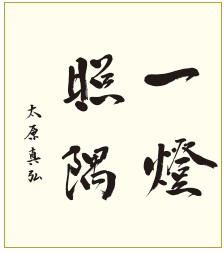 一燈
照隅
太原真弘